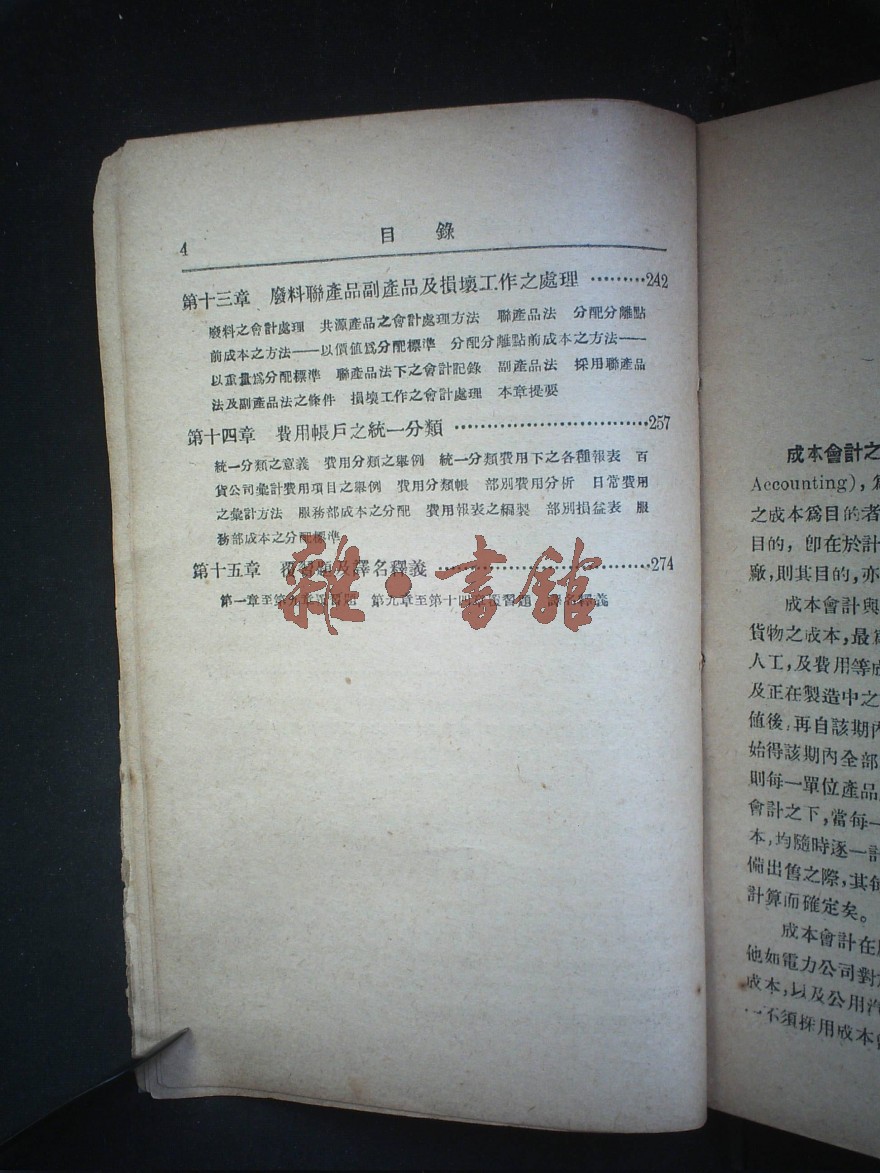 4
目錄
第十三章 廢料聯產品副產品及損壞工作之處理 ………242
廢料之會計處理 共源產品之會計處理方法 聯產品法 分配分離點
前成本之方法——以價値爲分配標準 分配分離點前成本之方法——
以重量爲分配標準 聯產品法下之會計記錄 副產品法 採用聯產品
法及副產品法之條件 損壞工作之會計處理 本章提要
第十四章 費用帳戶之統一分類 …………………………257
統一分類之意義 費用分類之舉例 統一分類費用下之各種報表 百
貨公司彙計費用項目之舉例 費用分類帳 部別費用分析 日常費用
之彙計方法 服務部成本之分配 費用報表之編製 部別損益表 服
務部成本之分配標準
第十五章 覆習題及譯名釋義 …………………………274
第一章至第九章覆習題 第九章至第十四章覆習題 譯名釋義
雜·書館
成本會計之
Accounting),
之成本爲目的者
目的, 卽在於計
廠,則其目的,亦
成本會計與
貨物之成本,最
人工,及費用等成
及正在製造中之
値後,再自該期內
始得該期內全部
則每一單位產品
會計之下,當每一
本,均隨時逐一計
備出售之際,其每
計算而確定矣。
成本會計在
他如電力公司對
成本,以及公用汽
一不須採用成本